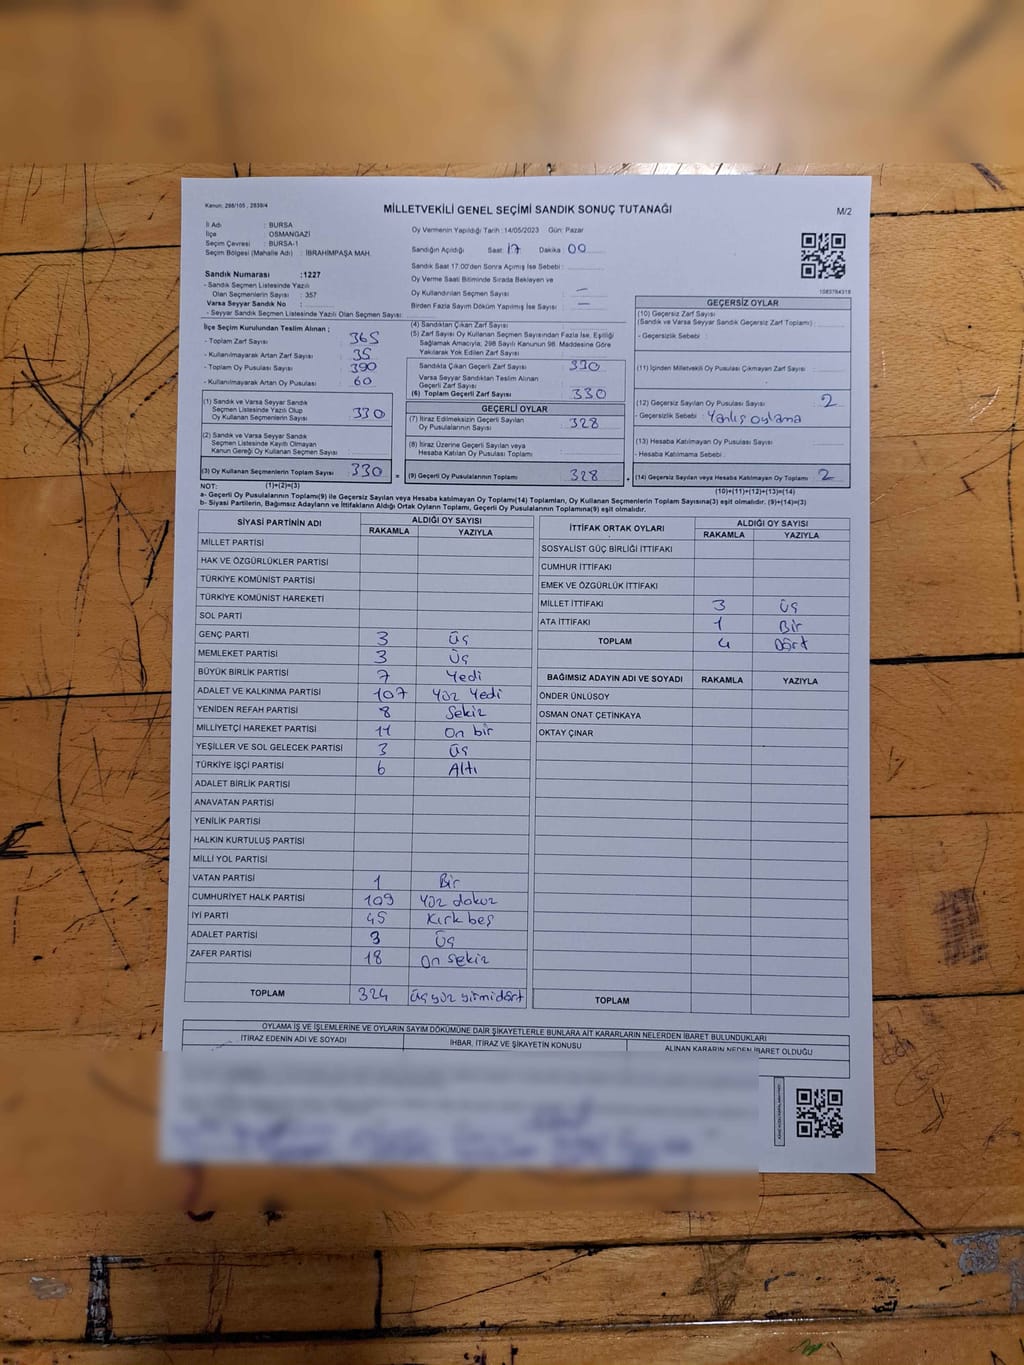 Kanun: 298/105 , 2839/4
MİLLETVEKİLİ GENEL SEÇİMİ SANDIK SONUÇ TUTANAĞI
M/2
İl Adı : BURSA
İlçe : OSMANGAZİ
Seçim Çevresi : BURSA-1
Seçim Bölgesi (Mahalle Adı) : İBRAHİMPAŞA MAH.
Sandık Numarası :1227
- Sandık Seçmen Listesinde Yazılı
Olan Seçmenlerin Sayısı : 357
Varsa Seyyar Sandık No :
- Seyyar Sandık Seçmen Listesinde Yazılı Olan Seçmen Sayısı:
Oy Vermenin Yapıldığı Tarih : 14/05/2023 Gün: Pazar
Sandığın Açıldığı Saat: 17 Dakika : 00
Sandık Saat 17:00'den Sonra Açımış İse Sebebi :
Oy Verme Saati Bitiminde Sırada Bekleyen ve
Oy Kullandırılan Seçmen Sayısı : —
Birden Fazla Sayım Döküm Yapılmış İse Sayısı : —
İlçe Seçim Kurulundan Teslim Alınan ;
- Toplam Zarf Sayısı : 365
- Kullanılmayarak Artan Zarf Sayısı : 35
- Toplam Oy Pusulası Sayısı : 390
- Kullanılmayarak Artan Oy Pusulası : 60
(1) Sandık ve Varsa Seyyar Sandık
Seçmen Listesinde Yazılı Olup
Oy Kullanan Seçmenlerin Sayısı : 330
(2) Sandık ve Varsa Seyyar Sandık
Seçmen Listesinde Kayıtlı Olmayan
Kanun Gereği Oy Kullanan Seçmen Sayısı :
(3) Oy Kullanan Seçmenlerin Toplam Sayısı : 330 =
(1)+(2)=(3)
(4) Sandıktan Çıkan Zarf Sayısı
(5) Zarf Sayısı Oy Kullanan Seçmen Sayısından Fazla İse, Eşitliği
Sağlamak Amacıyla; 298 Sayılı Kanunun 98. Maddesine Göre
Yakılarak Yok Edilen Zarf Sayısı :
Sandıkta Çıkan Geçerli Zarf Sayısı : 330
Varsa Seyyar Sandıktan Teslim Alınan
Geçerli Zarf Sayısı
(6) Toplam Geçerli Zarf Sayısı : 330
GEÇERLİ OYLAR
(7) İtiraz Edilmeksizin Geçerli Sayılan
Oy Pusulalarının Sayısı : 328
(8) İtiraz Üzerine Geçerli Sayılan veya
Hesaba Katılan Oy Pusulası Toplamı :
(9) Geçerli Oy Pusulalarının Toplamı : 328 +
1083784318
GEÇERSİZ OYLAR
(10) Geçersiz Zarf Sayısı
(Sandık ve Varsa Seyyar Sandık Geçersiz Zarf Toplamı) :
- Geçersizlik Sebebi :
(11) İçinden Milletvekili Oy Pusulası Çıkmayan Zarf Sayısı :
(12) Geçersiz Sayılan Oy Pusulası Sayısı : 2
- Geçersizlik Sebebi : Yanlış oylama
(13) Hesaba Katılmayan Oy Pusulası Sayısı :
- Hesaba Katılmama Sebebi :
(14) Geçersiz Sayılan veya Hesaba Katılmayan Oy Toplamı : 2
(10)+(11)+(12)+(13)=(14)
NOT:
a- Geçerli Oy Pusulalarının Toplamı(9) ile Geçersiz Sayılan veya Hesaba katılmayan Oy Toplamı(14) Toplamları, Oy Kullanan Seçmenlerin Toplam Sayısına(3) eşit olmalıdır. (9)+(14)=(3)
b- Siyasi Partilerin, Bağımsız Adayların ve İttifakların Aldığı Ortak Oyların Toplamı, Geçerli Oy Pusulalarının Toplamına(9) eşit olmalıdır.
SİYASİ PARTİNİN ADI ALDIĞI OY SAYISI
RAKAMLA YAZIYLA
MİLLET PARTİSİ
HAK VE ÖZGÜRLÜKLER PARTİSİ
TÜRKİYE KOMÜNİST PARTİSİ
TÜRKİYE KOMÜNİST HAREKETİ
SOL PARTİ
GENÇ PARTİ 3 Üç
MEMLEKET PARTİSİ 3 Üç
BÜYÜK BİRLİK PARTİSİ 7 Yedi
ADALET VE KALKINMA PARTİSİ 107 Yüz Yedi
YENİDEN REFAH PARTİSİ 8 Sekiz
MİLLİYETÇİ HAREKET PARTİSİ 11 On bir
YEŞİLLER VE SOL GELECEK PARTİSİ 3 Üç
TÜRKİYE İŞÇİ PARTİSİ 6 Altı
ADALET BİRLİK PARTİSİ
ANAVATAN PARTİSİ
YENİLİK PARTİSİ
HALKIN KURTULUŞ PARTİSİ
MİLLİ YOL PARTİSİ
VATAN PARTİSİ 1 Bir
CUMHURİYET HALK PARTİSİ 109 Yüz dokuz
İYİ PARTİ 45 Kırk beş
ADALET PARTİSİ 3 Üç
ZAFER PARTİSİ 18 On sekiz
TOPLAM 324 Üçyüz yirmidört
İTTİFAK ORTAK OYLARI ALDIĞI OY SAYISI
RAKAMLA YAZIYLA
SOSYALİST GÜÇ BİRLİĞİ İTTİFAKI
CUMHUR İTTİFAKI
EMEK VE ÖZGÜRLÜK İTTİFAKI
MİLLET İTTİFAKI 3 Üç
ATA İTTİFAKI 1 Bir
TOPLAM 4 Dört
BAĞIMSIZ ADAYIN ADI VE SOYADI RAKAMLA YAZIYLA
ÖNDER ÜNLÜSOY
OSMAN ONAT ÇETİNKAYA
OKTAY ÇINAR
TOPLAM
OYLAMA İŞ VE İŞLEMLERİNE VE OYLARIN SAYIM DÖKÜMÜNE DAİR ŞİKAYETLERLE BUNLARA AİT KARARLARIN NELERDEN İBARET BULUNDUKLARI
İTİRAZ EDENİN ADI VE SOYADI İHBAR, İTİRAZ VE ŞİKAYETİN KONUSU ALINAN KARARIN NEDEN İBARET OLDUĞU